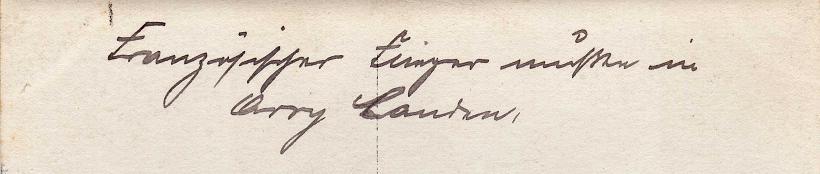 Französischer Flieger mußte in
Arry Landen.